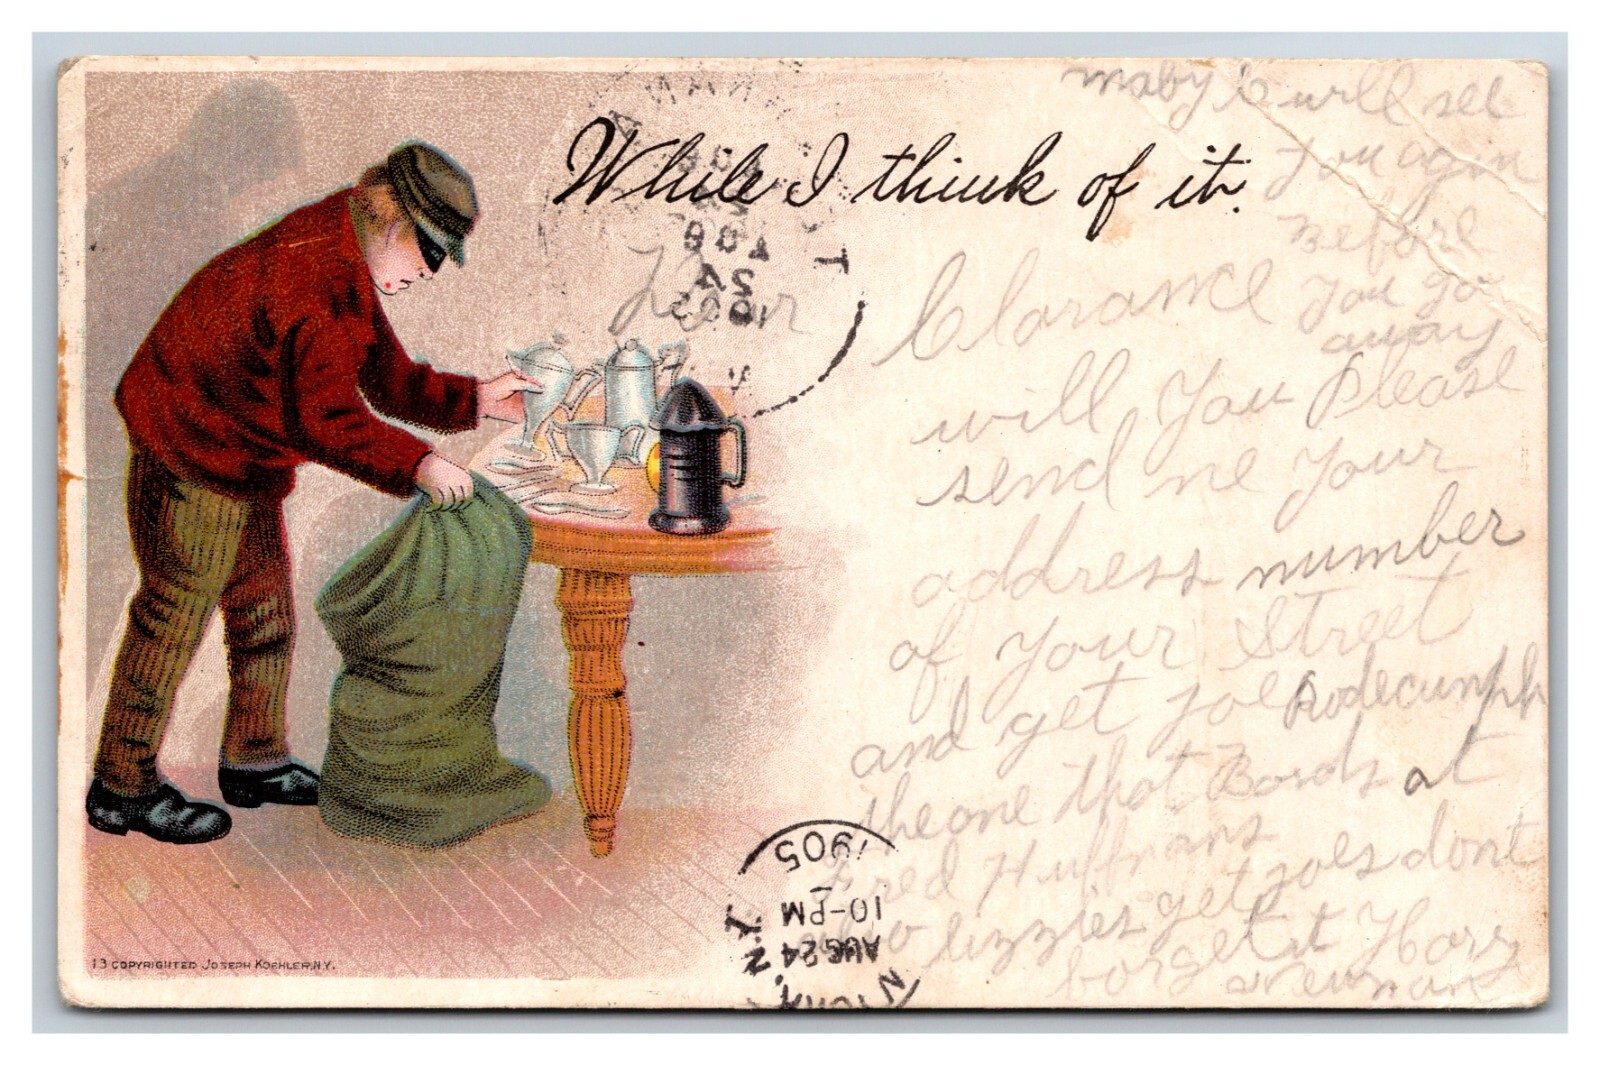 While I think of it.
maby I will see
you agin
Before
you go
away
Dear Clarance
will you Please
send me your
address number
of your Street
and get joe
the one that Boards at
Fred Huffmans
also lizzies get joes dont
forget it Harry
Newman
1905
10-PM
AUG 24
N.Y.
13 COPYRIGHTED JOSEPH KOEHLER, N.Y.